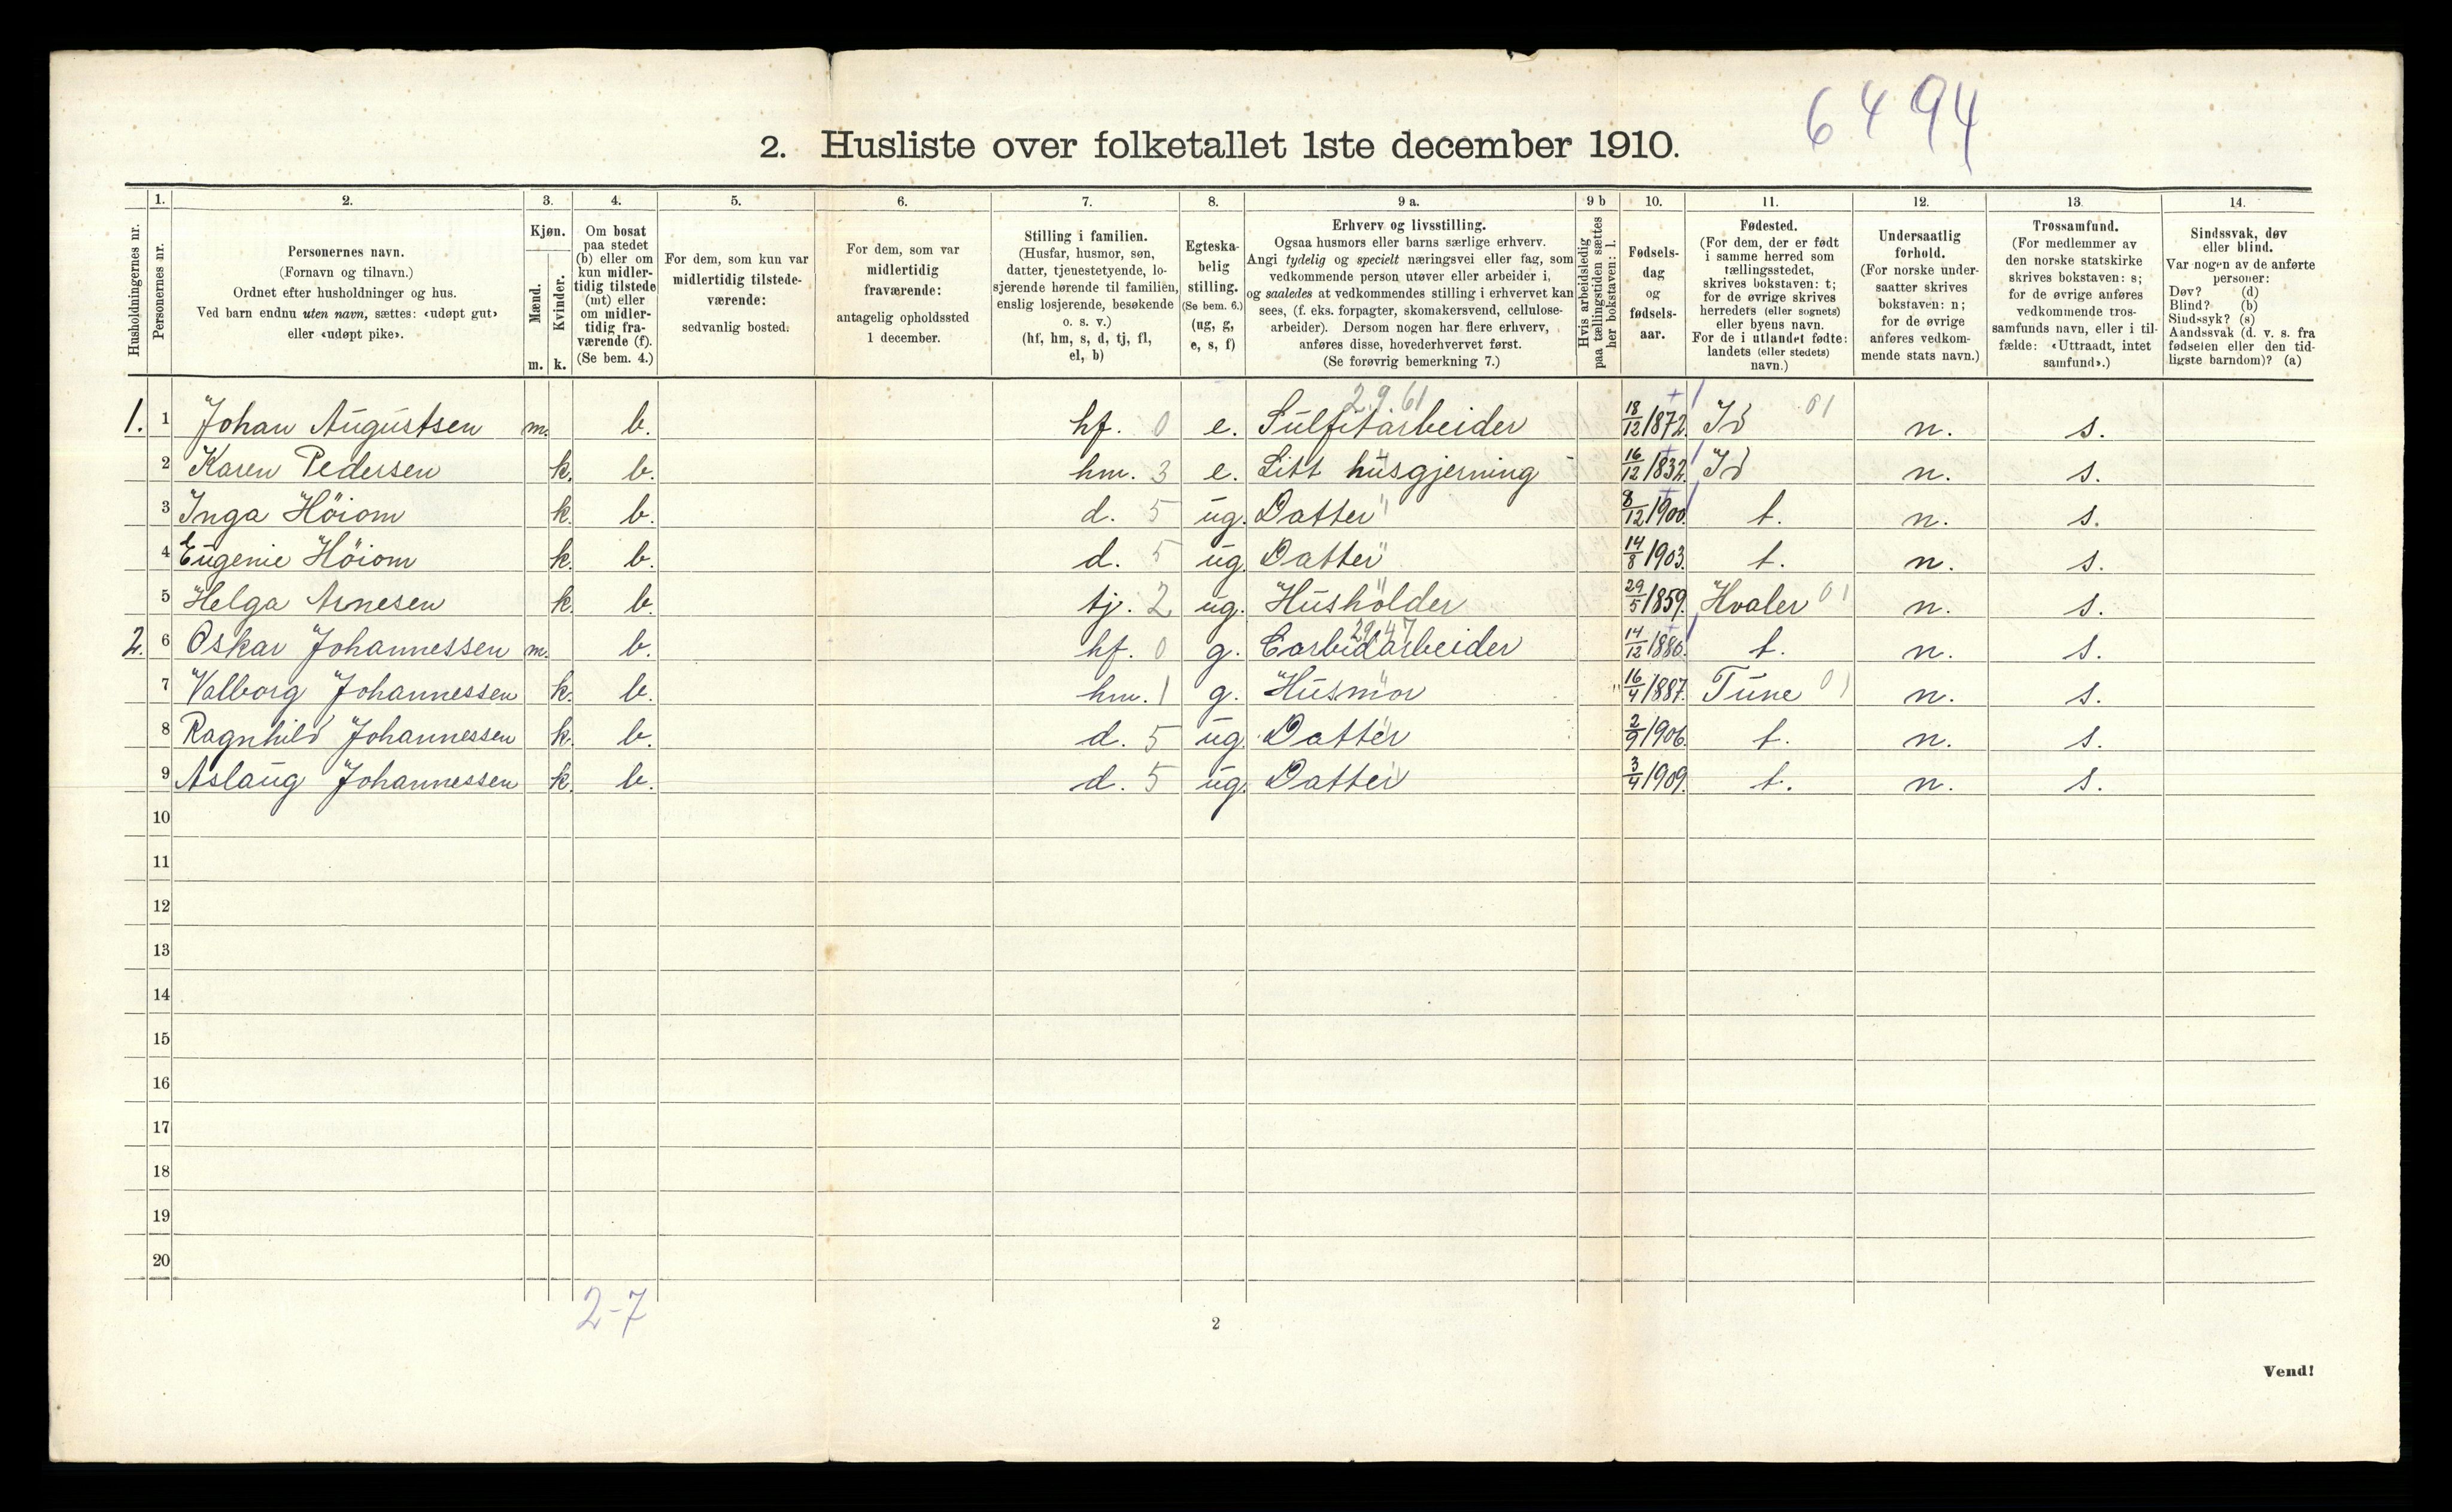 6494
2. Husliste over folketallet 1ste december 1910.
1. 2. 3. 4. 5. 6. 7. 8. 9 a. 9 b 10. 11. 12. 13. 14.
Husholdningernes nr.
Personernes nr.
Personernes navn.
(Fornavn og tilnavn.)
Ordnet efter husholdninger og hus.
Ved barn endnu uten navn, sættes: «udøpt gut»
eller «udøpt pike».
Kjøn.
Mænd.
Kvinder.
m. k.
Om bosat
paa stedet
(b) eller om
kun midler-
tidig tilstede
(mt) eller
om midler-
tidig fra-
værende (f).
(Se bem. 4.)
For dem, som kun var
midlertidig tilstede-
værende:
sedvanlig bosted.
For dem, som var
midlertidig
fraværende:
antagelig opholdssted
1 december.
Stilling i familien.
(Husfar, husmor, søn,
datter, tjenestetyende, lo-
sjerende hørende til familien,
enslig losjerende, besøkende
o. s. v.)
(hf, hm, s, d, tj, fl,
el, b)
Egteska-
belig
stilling.
(Se bem. 6.)
(ug, g,
e, s, f)
Erhverv og livsstilling.
Ogsaa husmors eller barns særlige erhverv.
Angi tydelig og specielt næringsvei eller fag, som
vedkommende person utøver eller arbeider i,
og saaledes at vedkommendes stilling i erhvervet kan
sees, (f. eks. forpagter, skomakersvend, cellulose-
arbeider). Dersom nogen har flere erhverv,
anføres disse, hovederhvervet først.
(Se forøvrig bemerkning 7.)
Hvis arbeidsledig
paa tællingstiden sættes
her bokstaven: l.
Fødsels-
dag
og
fødsels-
aar.
Fødested.
(For dem, der er født
i samme herred som
tællingsstedet,
skrives bokstaven: t;
for de øvrige skrives
herredets (eller sognets)
eller byens navn.
For de i utlandet fødte:
landets (eller stedets)
navn.)
Undersaatlig
forhold.
(For norske under-
saatter skrives
bokstaven: n;
for de øvrige
anføres vedkom-
mende stats navn.)
Trossamfund.
(For medlemmer av
den norske statskirke
skrives bokstaven: s;
for de øvrige anføres
vedkommende tros-
samfunds navn, eller i til-
fælde: «Uttraadt, intet
samfund».)
Sindssvak, døv
eller blind.
Var nogen av de anførte
personer:
Døv? (d)
Blind? (b)
Sindssyk? (s)
Aandssvak (d. v. s. fra
fødselen eller den tid-
ligste barndom)? (a)
2.9 61
1. 1 Johan Augustsen m. b. hf. 0 e. Sulfitarbeider 18/12 1872. Id 01 n. s.
2 Karen Pedersen k. b. hm. 3 e. Litt husgjerning 16/12 1832. Id n. s.
3 Inga Höiom k. b. d. 5 ug. Datter 8/12 1900. t. n. s.
4 Eugenie Höiom k. b. d. 5 ug. Datter 14/8 1903. t. n. s.
5 Helga Arnesen k. b. tj. 2 ug. Husholder 29/5 1859. Hvaler 01 n. s.
29 47
2. 6 Oskar Johannessen m. b. hf. 0 g. Carbidarbeider 14/12 1886. t. n. s.
7 Valborg Johannessen k. b. hm. 1 g. Husmor 16/4 1887. Tune 01 n. s.
8 Ragnhild Johannessen k. b. d. 5 ug. Datter 2/9 1906. t. n. s.
9 Aslaug Johannessen k. b. d. 5 ug. Datter 3/4 1909. t. n. s.
10
11
12
13
14
15
16
17
18
19
20
2-7
2
Vend!